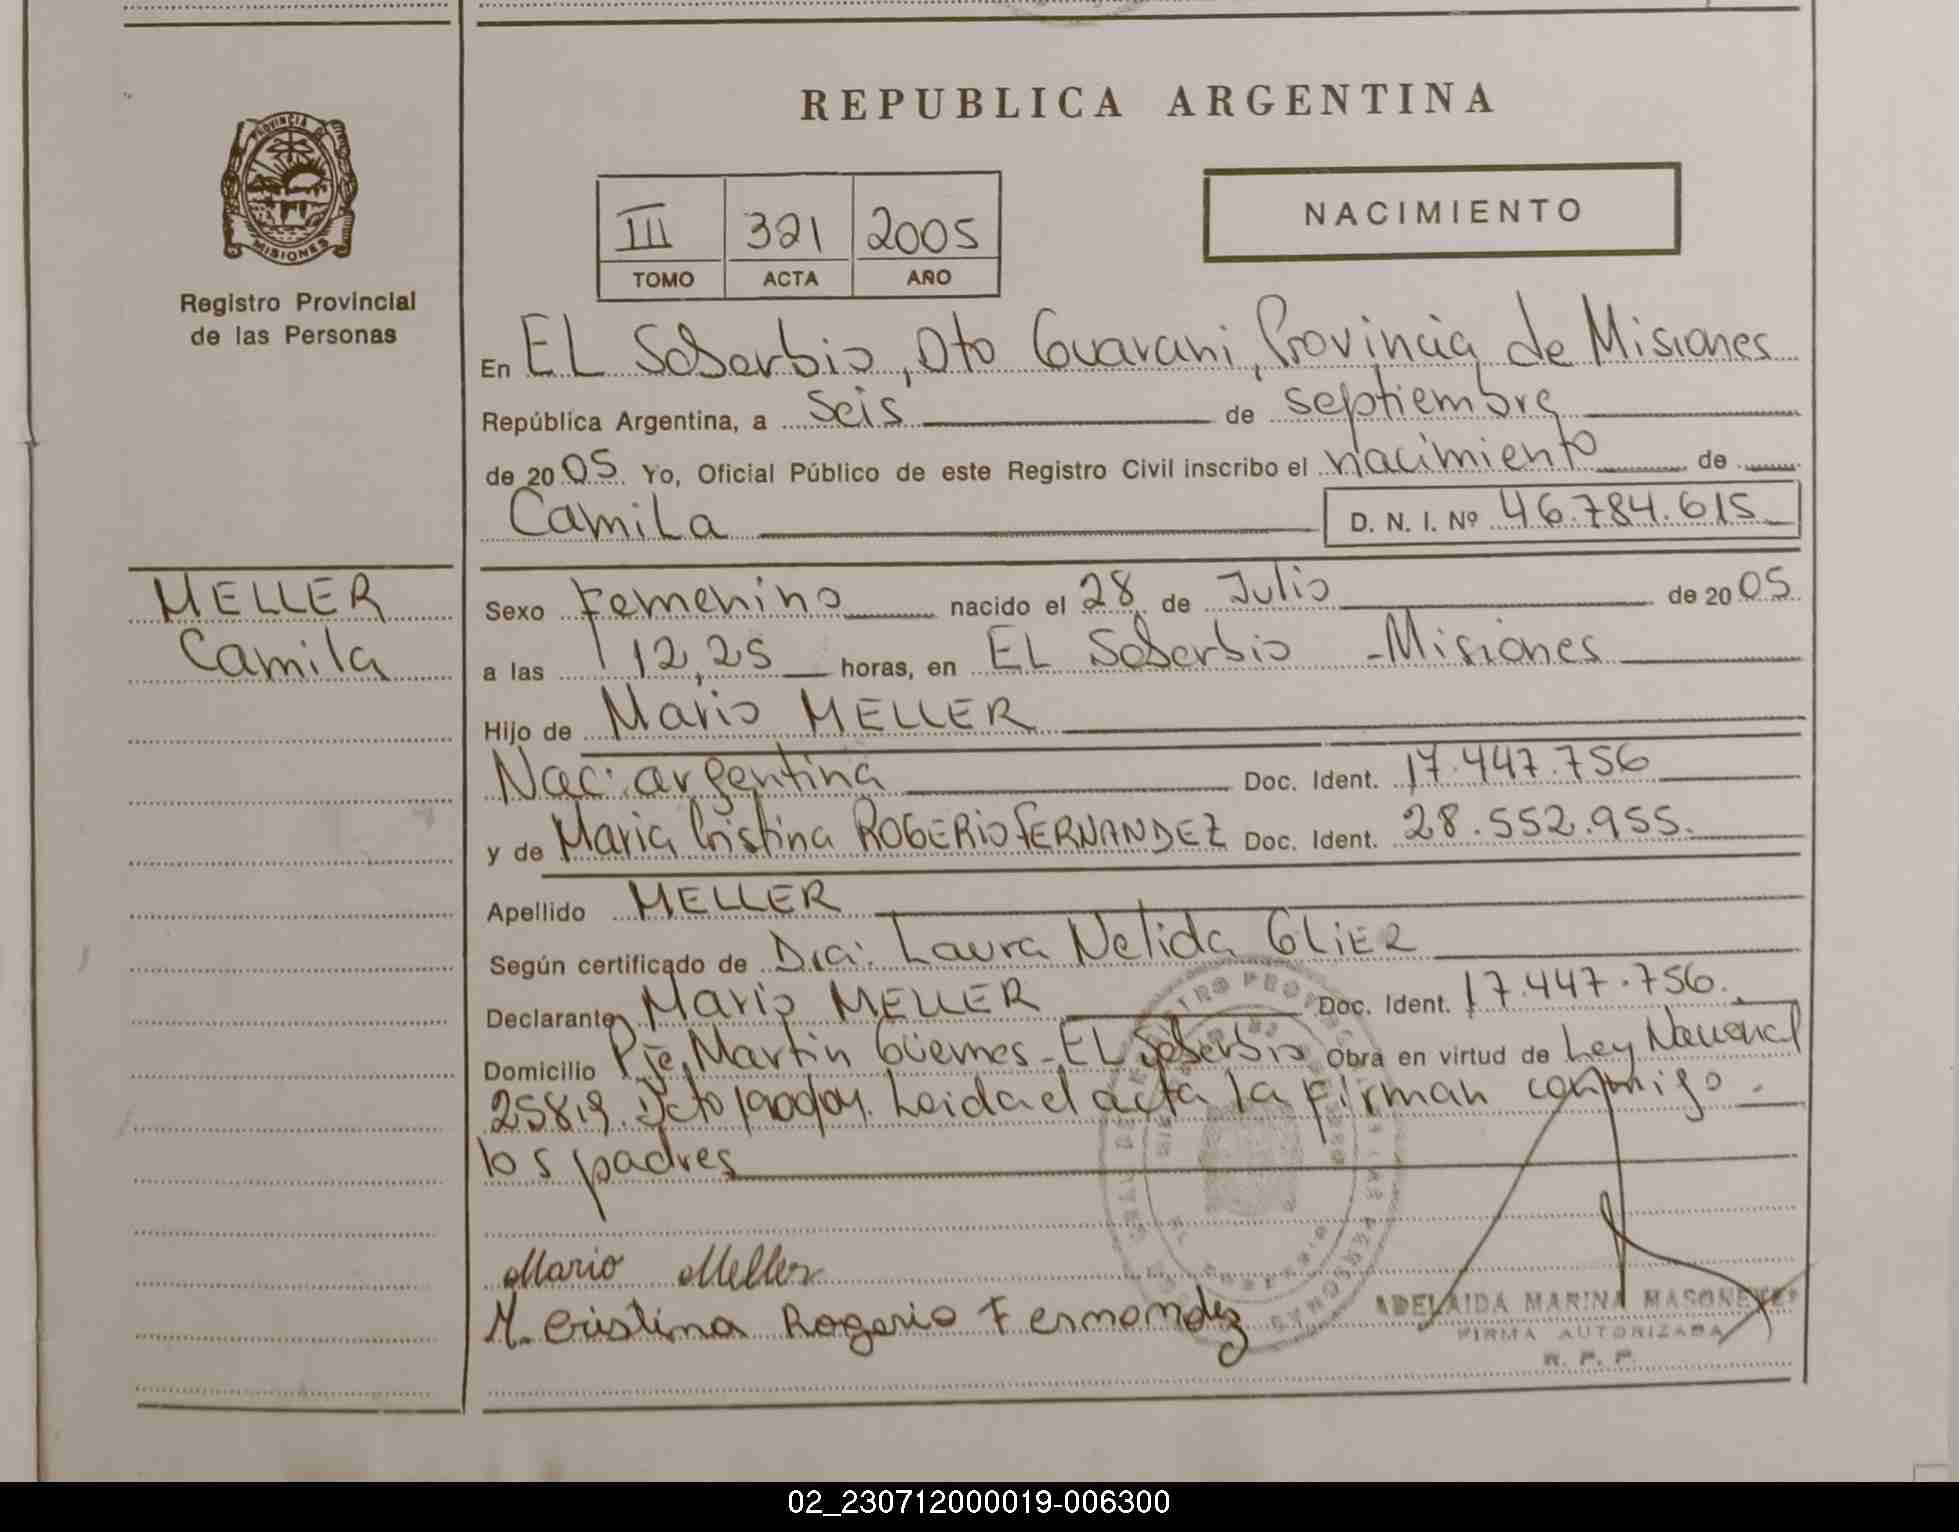 REPUBLICA ARGENTINA
PROVINCIA DE
MISIONES
Registro Provincial
de las Personas
III 321 2005
TOMO ACTA AÑO
NACIMIENTO
En EL Soberbio, Dto Guarani, Provincia de Misiones
República Argentina, a seis de septiembre
de 2005 Yo, Oficial Público de este Registro Civil inscribo el nacimiento de
Camila D. N. I. Nº 46.784.615
MELLER
Camila
Sexo Femenino nacido el 28 de Julio de 2005
a las 12,25 horas, en EL Soberbio - Misiones
Hijo de Mario MELLER
Nac: argentina Doc. Ident. 17.447.756
y de Maria Cristina ROGERIO FERNANDEZ Doc. Ident. 28.552.955.
Apellido MELLER
Según certificado de Dra: Laura Nelida GLIER
Declarante Mario MELLER Doc. Ident. 17.447.756.
Domicilio Pje, Martin Güemes - EL Soberbio Obra en virtud de Ley Nacional
25819. Dcto 1900/04. Leida el acta la firman conmigo
los padres
Mario Meller
M. Cristina Rogerio Fernandez
ADELAIDA MARINA
FIRMA AUTORIZADA
R. P. P.
02_230712000019-006300